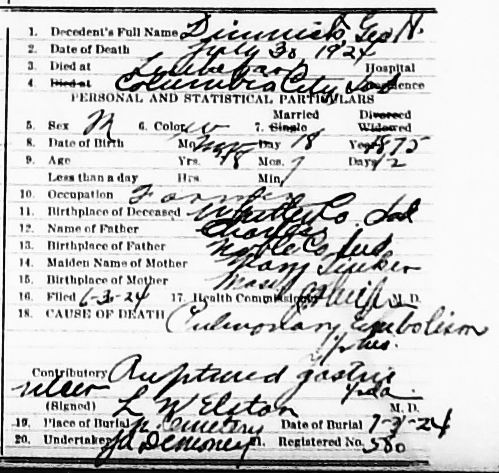 1. Decedent's Full Name Dimmick Geo N.
2. Date of Death July 30 1924
3. Died at Hospital
4. Died at Columbia City Ind Residence
PERSONAL AND STATISTICAL PARTICULARS
Married Divorced
5. Sex M 6. Color W 7. Single Widowed
8. Date of Birth Mo. Day 18 Year 1875
9. Age Yrs. 48 Mos. Days 12
Less than a day Hrs. Min.
10. Occupation Farmer
11. Birthplace of Deceased Whitley Co Ind
12. Name of Father Charles
13. Birthplace of Father Noble Co Ind
14. Maiden Name of Mother Mary
15. Birthplace of Mother
16. Filed 6-3-24 17. Health Commissioner M. D.
18. CAUSE OF DEATH Pulmonary Embolism
Contributory Ruptured gastric
ulcer
(Signed) L W Elston M. D.
19. Place of Burial Cemetery Date of Burial
20. Undertaker 21. Registered No. 580